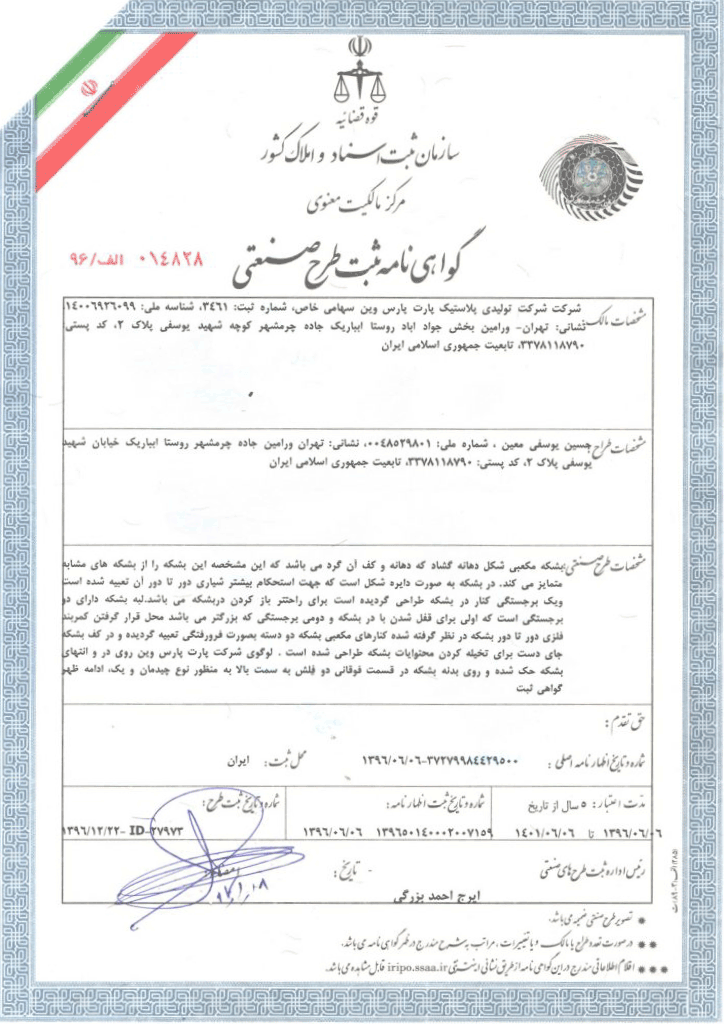 قوه قضائیه
سازمان ثبت اسناد و املاک کشور
مرکز مالکیت معنوی
گواهی نامه ثبت طرح صنعتی
۰۱۴۸۲۸ الف/۹۶
مشخصات مالک:
شرکت شرکت تولیدی پلاستیک پارت پارس وین سهامی خاص، شماره ثبت: ۳۴۶۱، شناسه ملی: ۱۴۰۰۶۹۲۶۰۹۹،
نشانی: تهران- ورامین بخش جواد اباد روستا ایباریک جاده چرمشهر کوچه شهید یوسفی پلاک ۲، کد پستی
۳۳۷۸۱۱۸۷۹۰، تابعیت جمهوری اسلامی ایران
مشخصات طراح:
حسین یوسفی معین ، شماره ملی: ۰۰۴۸۵۲۹۸۰۱، نشانی: تهران ورامین جاده چرمشهر روستا ایباریک خیابان شهید
یوسفی پلاک ۲، کد پستی: ۳۳۷۸۱۱۸۷۹۰، تابعیت جمهوری اسلامی ایران
مشخصات طرح صنعتی:
بشکه مکعبی شکل دهانه گشاد که دهانه و کف آن گرد می باشد که این مشخصه این بشکه را از بشکه های مشابه
متمایز می کند. در بشکه به صورت دایره شکل است که جهت استحکام بیشتر شیاری دور تا دور آن تعبیه شده است
ویک برجستگی کنار در بشکه طراحی گردیده است برای راحتتر باز کردن دربشکه می باشد.لبه بشکه دارای دو
برجستگی است که اولی برای قفل شدن با در بشکه و دومی برجستگی که بزرگتر می باشد محل قرار گرفتن کمربند
فلزی دور تا دور بشکه در نظر گرفته شده کنارهای مکعبی بشکه دو دسته بصورت فرورفتگی تعبیه گردیده و در کف بشکه
جای دست برای تخیله کردن محتوایات بشکه طراحی شده است . لوگوی شرکت پارت پارس وین روی در و انتهای
بشکه حک شده و روی بدنه بشکه در قسمت فوقانی دو فلش به سمت بالا به منظور نوع چیدمان و یک، ادامه ظهر
گواهی ثبت
حق تقدم:
شماره و تاریخ اظهارنامه اصلی : ۳۷۲۷۹۹۸۴۴۲۹۵۰۰-۱۳۹۶/۰۶/۰۶ محل ثبت: ایران
مدت اعتبار: ۵ سال از تاریخ
۱۳۹۶/۰۶/۰۶ تا ۱۴۰۱/۰۶/۰۶
شماره و تاریخ ثبت اظهارنامه:
۱۳۹۶۵۰۱۴۰۰۰۲۰۰۷۱۵۹ ۱۳۹۶/۰۶/۰۶
شماره و تاریخ ثبت طرح:
ID-۲۷۹۷۳ -۱۳۹۶/۱۲/۲۲
رئیس اداره ثبت طرح های صنعتی
ایرج احمد بزرگی
تاریخ:
امضاء
تصویر طرح صنعتی ضمیمه می باشد.
در صورت تعدد طراح یا مالک و یا تغییرات ، مراتب به شرح مندرج در ظهر گواهی نامه می باشد.
اقلام اطلاعاتی مندرج در این گواهی نامه از طریق نشانی اینترنتی iripo.ssaa.ir قابل مشاهده می باشد.